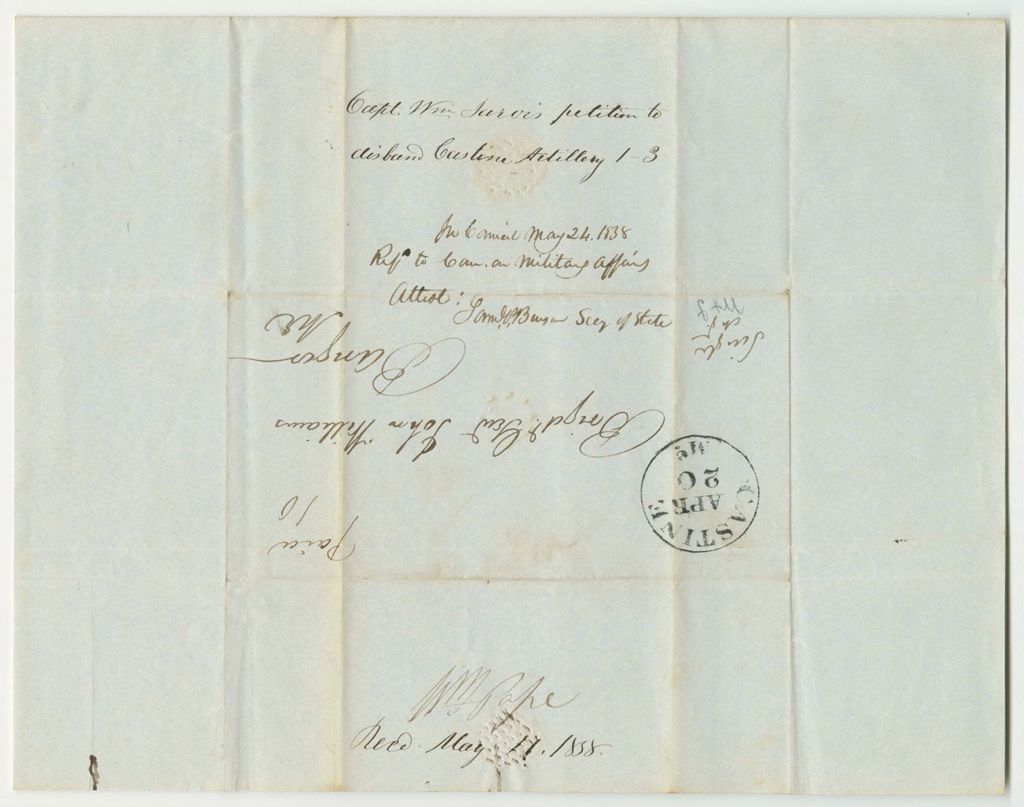 Capt. Wm. Jarvis petition to
disband Castine Artillery 1-3
In Council May 24. 1838
Refd to Com. on Military affairs
Attest:
Saml P. Benson Secy of State
Single
Brigd. Genl John Williams
Bangor
Me
Paid
10
CASTINE
APR
20
Me
Wm Pope
Recd. May 17. 1838.